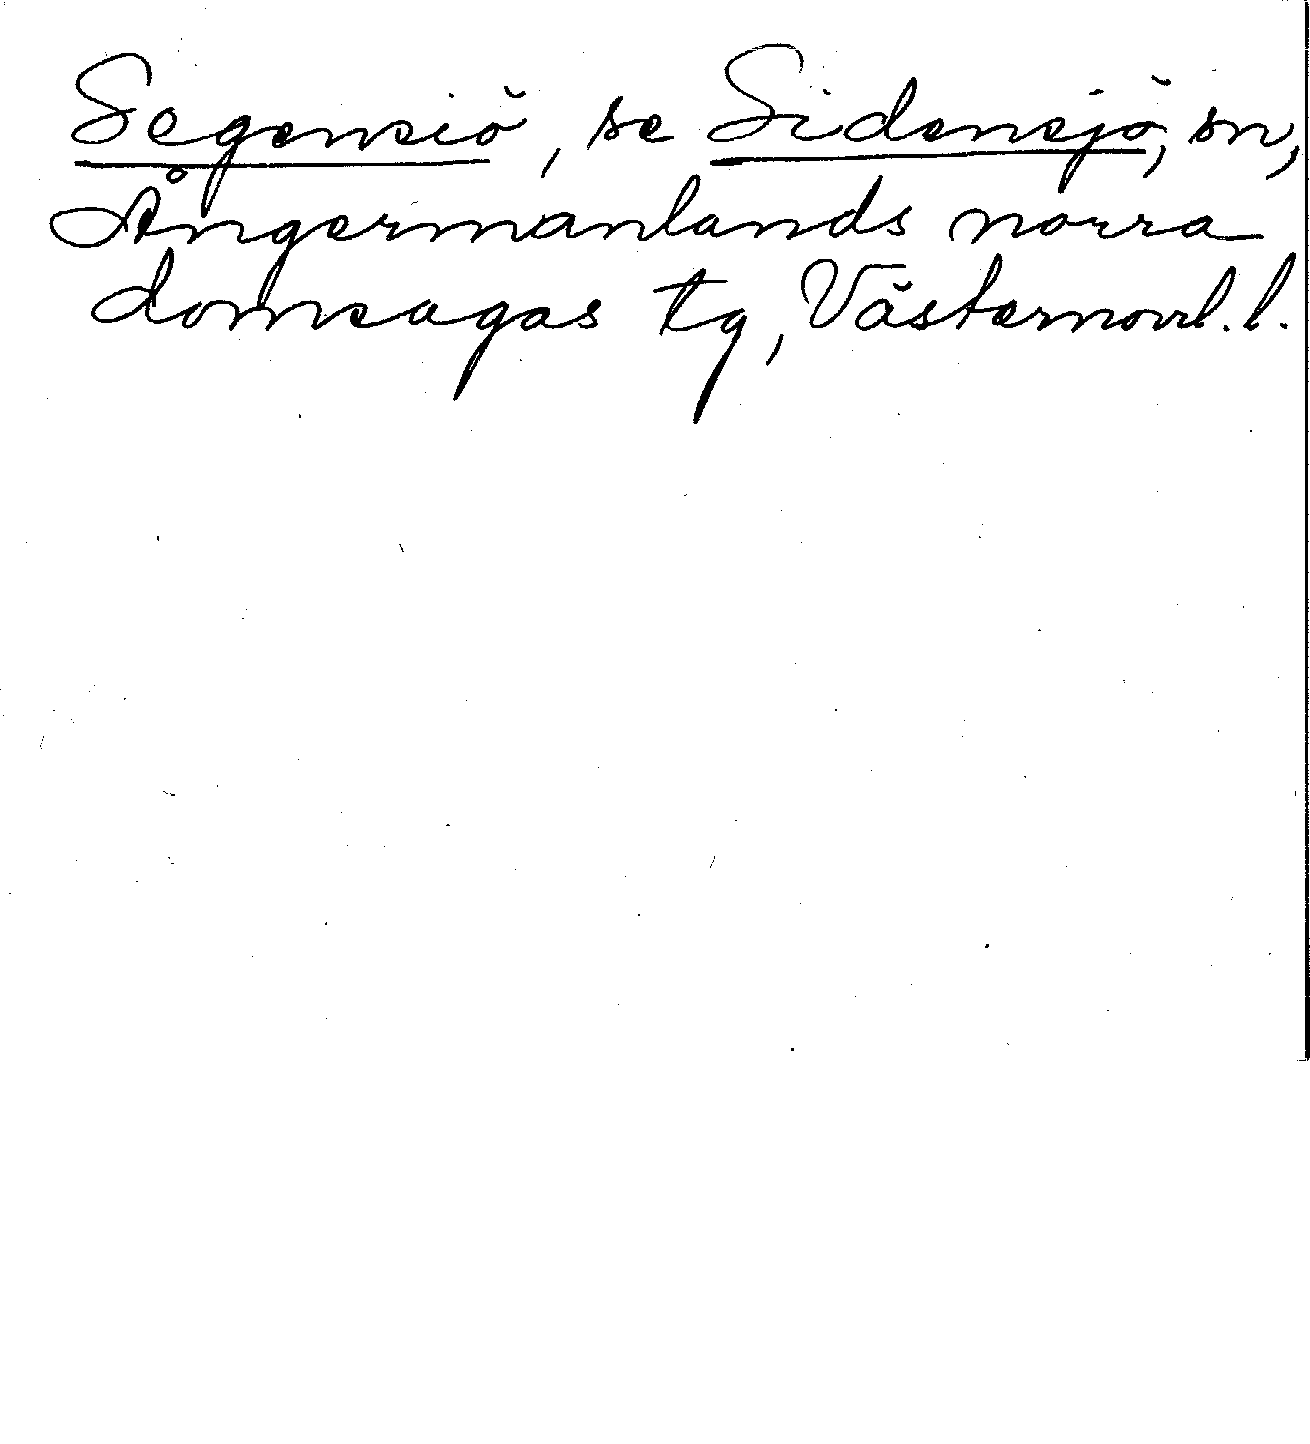 Segensiö, se Sidensjö, sn,
Ångermanlands norra
domsagas tg, Västernorrl. l.